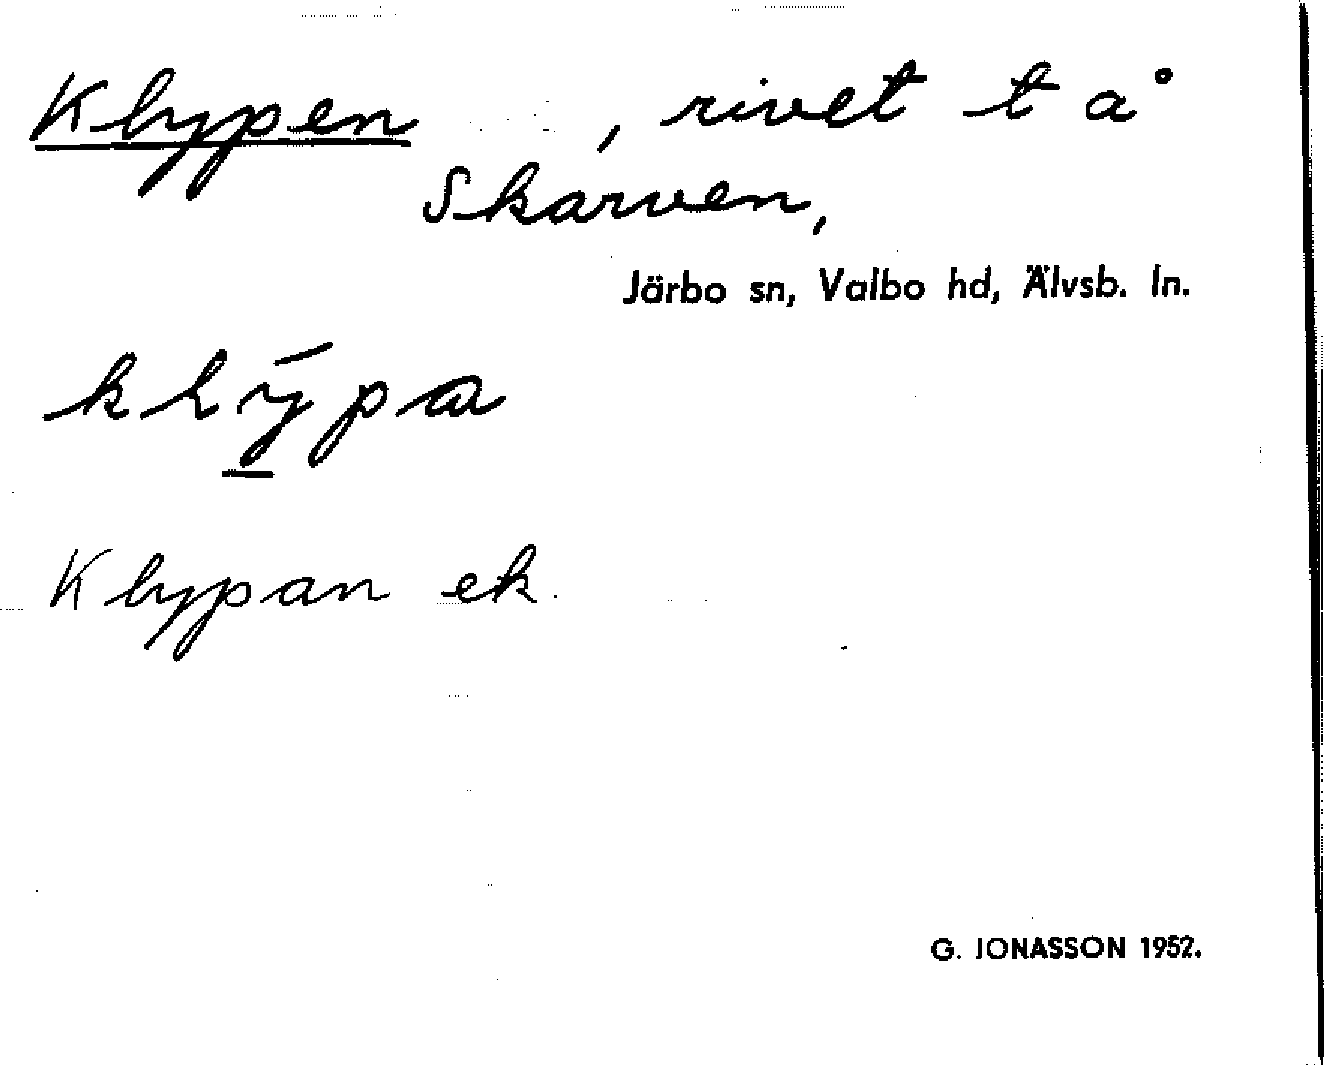 Klypen , rivet t å
Skarven,
Järbo sn, Valbo hd, Älvsb. ln.
Klypan ek.
G. JONASSON 1952.